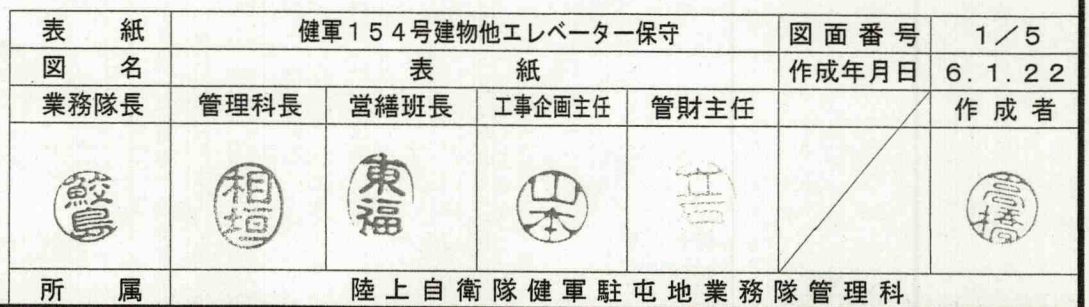 表紙 健軍154号建物他エレベーター保守 図面番号 1/5
図名 表紙 作成年月日 6.1.22
業務隊長 管理科長 営繕班長 工事企画主任 管財主任 作成者
鮫島 相垣 東福 山本 高橋
所属 陸上自衛隊健軍駐屯地業務隊管理科